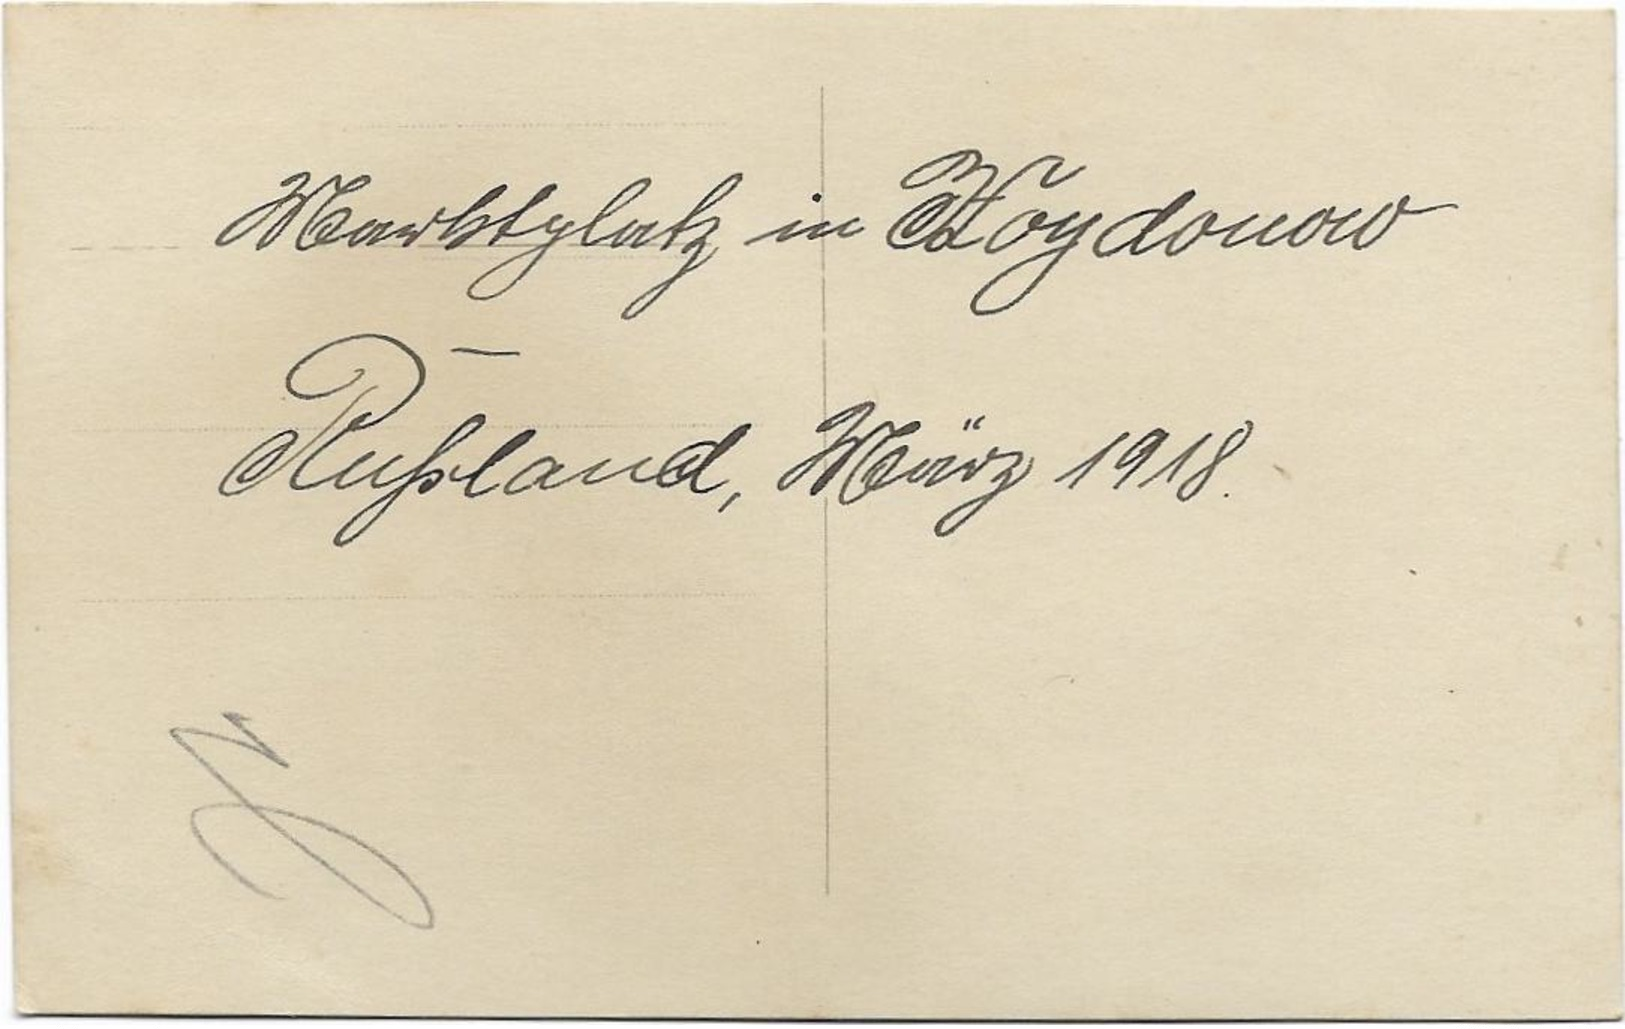 Marktplatz in Koydonow
Rußland, März 1918.